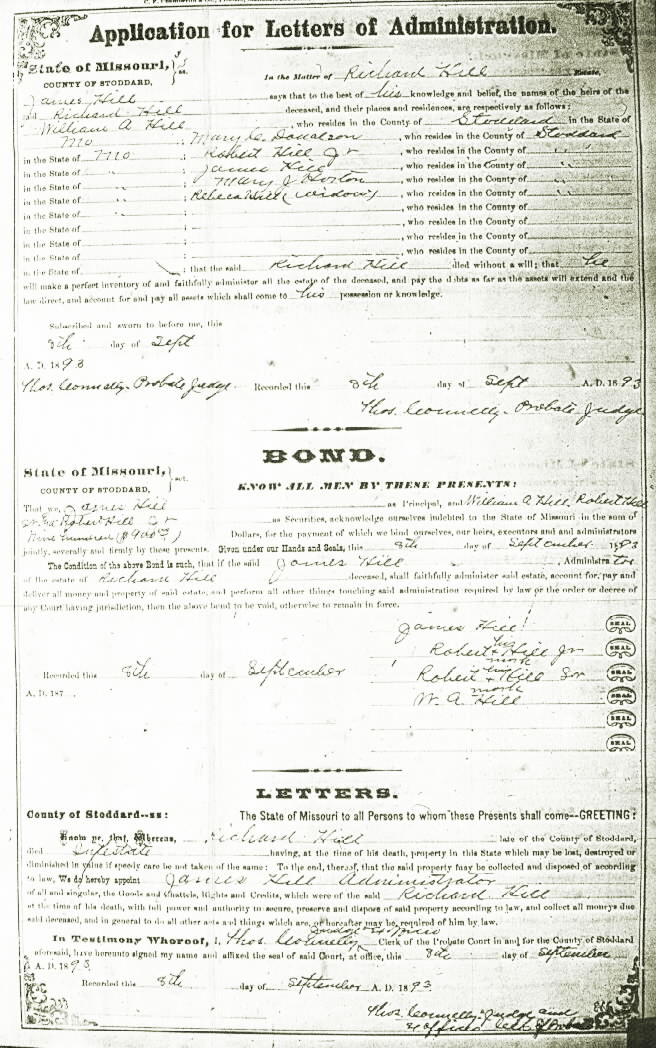 Application for Letters of Administration.
State of Missouri, } ss.
COUNTY OF STODDARD,
In the Matter of Richard Hill Estate,
James Hill says that to the best of his knowledge and belief, the names of the heirs of the
said Richard Hill deceased, and their places and residences, are respectively as follows:
William A Hill , who resides in the County of Stoddard in the State of
Mo ; Mary C. Donalson , who resides in the County of Stoddard
in the State of Mo ; Robert Hill Jr , who resides in the County of "
in the State of " ; James Hill , who resides in the County of "
in the State of " ; Mary J Horton , who resides in the County of "
in the State of " ; Rebeca Hill (widow) , who resides in the County of "
in the State of " ; , who resides in the County of
in the State of ; , who resides in the County of
in the State of ; , who resides in the County of
in the State of ; , who resides in the County of
in the State of ; that the said Richard Hill died without a will; that he
will make a perfect inventory of and faithfully administer all the estate of the deceased, and pay the debts as far as the assets will extend and the
law direct, and account for and pay all assets which shall come to his possession or knowledge.
Subscribed and sworn to before me, this
8th day of Sept
A. D. 1893
Thos. Connelly Probate Judge. Recorded this 8th day of Sept A. D. 1893
Thos. Connelly Probate Judge
BOND.
State of Missouri, } sct.
COUNTY OF STODDARD,
KNOW ALL MEN BY THESE PRESENTS:
That we, James Hill as Principal, and William A Hill, Robert Hill
Robert Hill Sr as Securities, acknowledge ourselves indebted to the State of Missouri in the sum of
Nine hundred ($900) Dollars, for the payment of which we bind ourselves, our heirs, executors and and administrators
jointly, severally and firmly by these presents. Given under our Hands and Seals, this 8th day of September 1893
The Condition of the above Bond is such, that if the said James Hill , Administrator
of the estate of Richard Hill deceased, shall faithfully administer said estate, account for, pay and
deliver all money and property of said estate, and perform all other things touching said administration required by law or the order or decree of
any Court having jurisdiction, then the above bond to be void, otherwise to remain in force.
James Hill SEAL
Robert his x mark Hill Jr SEAL
Recorded this 8th day of September Robert his x mark Hill Sr SEAL
A. D. 187 W. A. Hill SEAL
SEAL
SEAL
LETTERS.
County of Stoddard--ss: The State of Missouri to all Persons to whom these Presents shall come--GREETING:
Know ye, that, Whereas, Richard Hill late of the County of Stoddard,
died Intestate having, at the time of his death, property in this State which may be lost, destroyed or
diminished in value if speedy care be not taken of the same: To the end, therefor, that the said property may be collected and disposed of according
to law, We do hereby appoint James Hill Administrator
of all and singular, the Goods and Chattels, Rights and Credits, which were of the said Richard Hill
at the time of his death, with full power and authority to secure, preserve and dispose of said property according to law, and collect all moneys due
said deceased, and in general to do all other acts and things which are, or hereafter may be, required of him by law.
In Testimony Whereof, I, Thos. Connelly, Clerk of the Probate Court in and for the County of Stoddard
aforesaid, have hereunto signed my name and affixed the seal of said Court, at office, this 8th day of September
A. D. 1893.
Recorded this 8th day of September A. D. 1893
Thos. Connelly Judge and